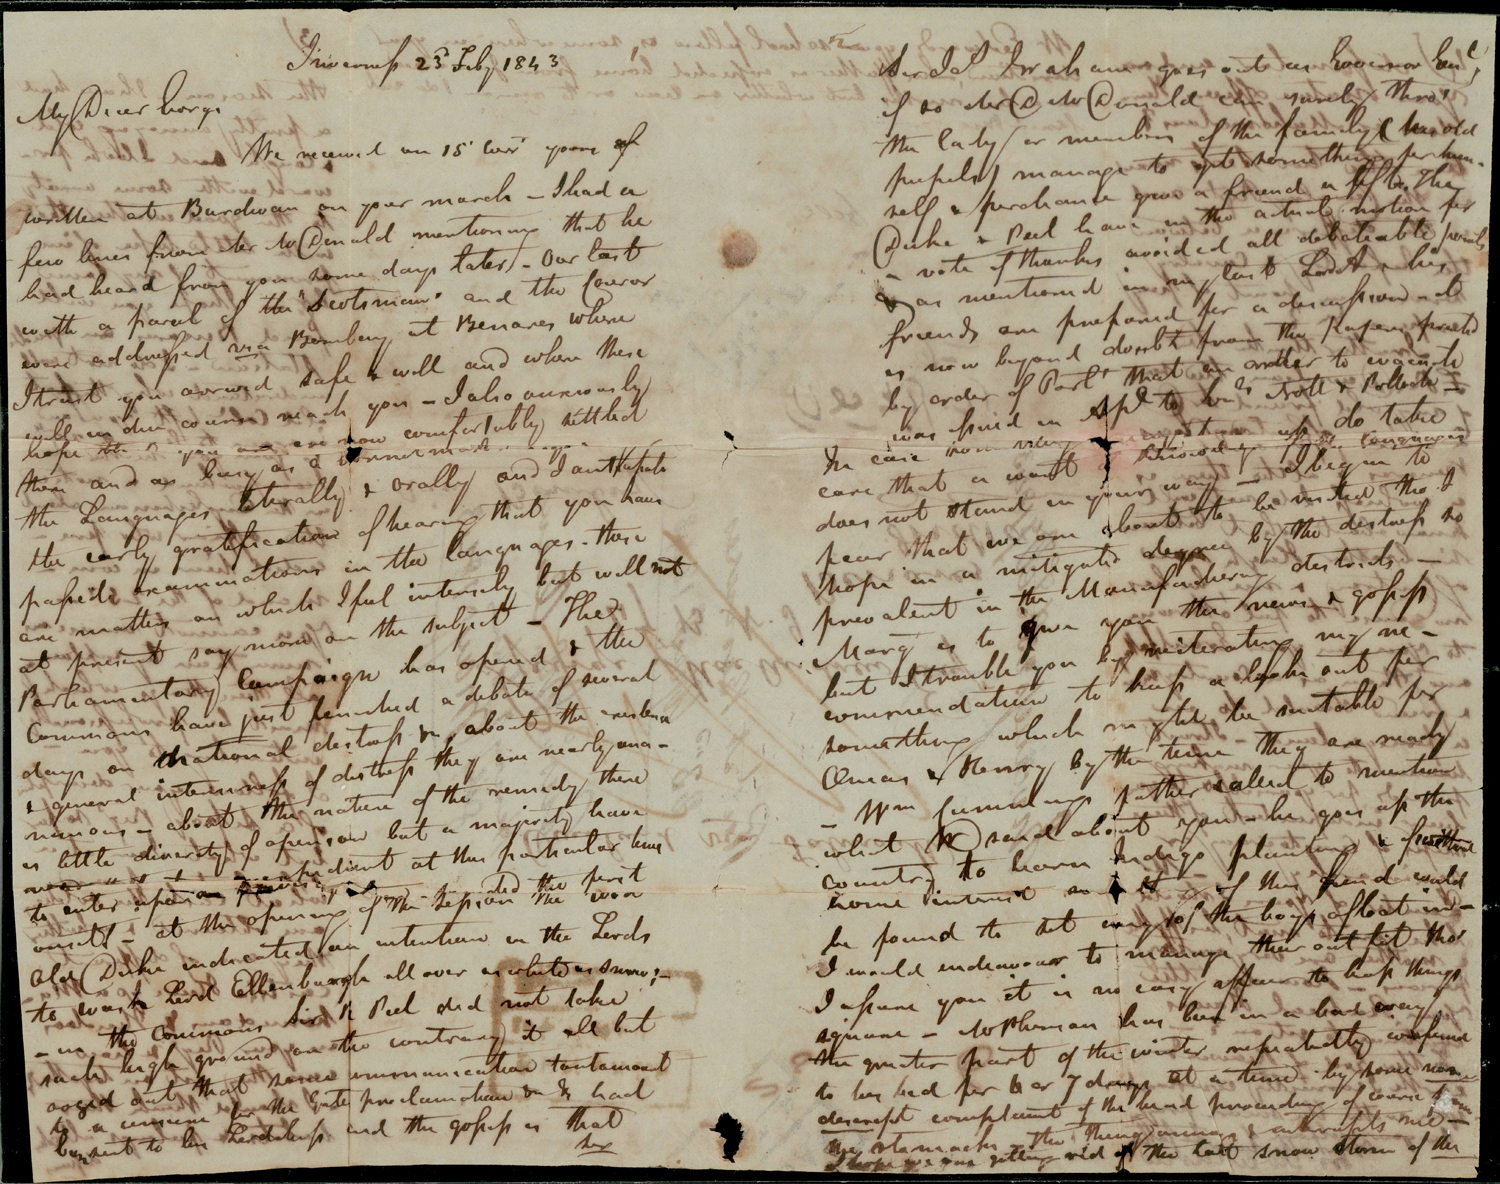 Inverness 23d Feby 1843
My Dear George
We received on 15' yours of
written at Burdwan on your march – I had a
few lines from Mr McDonald mentioning that he
had heard from you some days later – Our last
with a parcel of the "Scotsman" and the Courier
were addressed via Bombay at Benares where
I trust you arrived safe & well and where these
will in due course reach you – I also anxiously
hope that you are now comfortably settled
there and as busy as a
the Languages literally & orally and I anticipate
the early gratification of hearing that you have
passed examinations in the languages – these
are matters on which I feel intensely but will not
at present say more on the subject – The
Parliamentary Campaign has opened & the
Commons have just finished a debate of several
days on national distress & about the existence
& general intenseness of distress they are nearly una-
nimous – about the nature of the remedy there
is little diversity of opinion but a majority have
expedient at this particular time
to enter upon
– at the opening of the Session the first
Old Duke indicated an intention in the Lords
to wash Lord Ellenburgh all over as white as snow; –
– in the Commons Sir R Peel did not take
such high ground on the contrary it all but
oozed out that some communication tantamount
to a censure for the Gate proclamation & & had
been sent to his Lordship and the gossip is that
Sir
Sir Js Graham goes out as Governor Genl,
if so Mr D McDonald can surely thro'
the lady or members of the family (his old
pupils) manage to get something for him-
self & perchance give a friend a lift. The
Duke & Peel have in the actual motion for
a vote of thanks avoided all debateable points
& as mentioned in my last Lord A & his
friends are prepared for a discussion – it
is now beyond doubt from the papers printed
by order of Parlt that an order to evacuate
was issued in Apl to Genls Nott & Pollock –
In case do take
care that a want of knowledge of languages
does not stand in your way – I begin to
fear that we are about to be visited tho' I
hope in a mitigated degree by the distress so
prevalent in the Manufacturing districts –
Margt is to give you the news & gossip
but I trouble you by reiterating my re-
commendation to keep a look out for
something which might be suitable for
Aeneas & Henry by the time they are ready
– Wm Cummings father called to mention
what W said about you – he goes up the
country to learn Indigo planting & if
some interest of this kind could
be found to set any of the boys afloat in –
I would endeavour to manage their outfit tho'
I assure you it is no easy affair to keep things
square – McPherson has been in a bad way
the greater part of the winter repeatedly confined
to his bed for 6 or 7 days at a time by some non-
descript complaint of the head proceeding of course from
the stomach –
I hope we are getting rid of the last snow storm of the